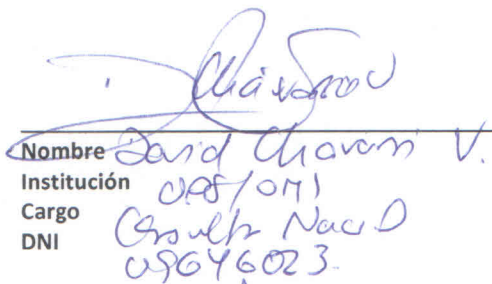 Nombre David Chavarri V.
Institución OPS/OMS
Cargo Consultor Nacional
DNI 09646023